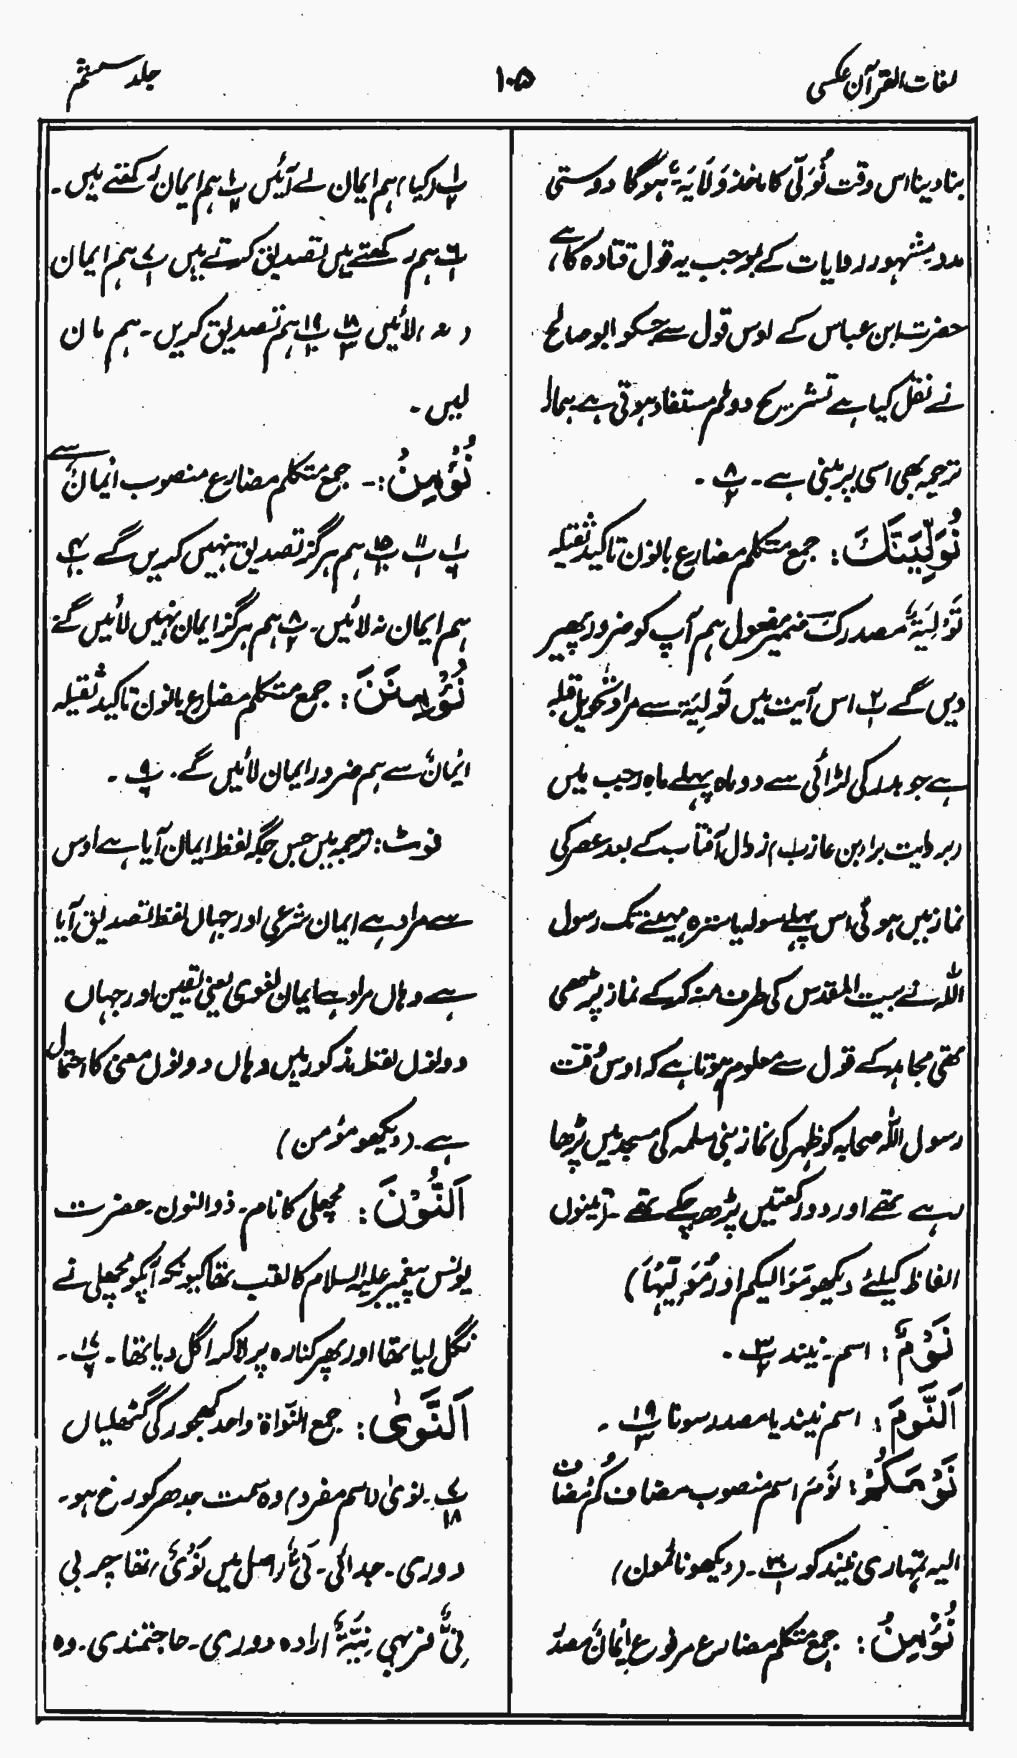 لغات القرآن عکسی
۱۰۵
جلد ششم
بنا دینا اس وقت نُوَلِّی کا ماخذ وَلَایَۃٌ ہوگا دوستی
مدد مشہور روایات کے بموجب یہ قول قتادہ کا ہے
حضرت ابن عباس کے اوس قول سے جسکو ابو صالح
نے نقل کیا ہے تشریح دوم مستفاد ہوتی ہے ہمارا
ترجمہ بھی اسی پر مبنی ہے۔ پ ۸ ۲۔
نُوَلِّیَنَّکَ: جمع متکلم مضارع بانون تاکید ثقیلہ
تَوْلِیَۃٌ مصدر کَ ضمیر مفعول ہم آپ کو ضرور پھیر
دیں گے پ۲ اس آیت میں تَوْلِیَۃ سے مراد تحویل قبلہ
ہے جو بدر کی لڑائی سے دو ماہ پہلے ماہ رجب میں
(بروایت براء بن عازب) زوال آفتاب کے بعد عصر کی
نماز میں ہوئی اس پہلے سولہ یا سترہ مہینے تک رسول
اللہ نے بیت المقدس کی طرف منہ کرکے نماز پڑھی
تھی مجاہد کے قول سے معلوم ہوتا ہے کہ اوس وقت
رسول اللہ صحابہ کو ظہر کی نماز بنی سلمہ کی مسجد میں پڑھا
رہے تھے اور دو رکعتیں پڑھ چکے تھے۔ (تینوں
الفاظ کیلئے دیکھو مَوَالیکم اور مُوَلِّیْہَا)
نَوْمٌ: اسم۔ نیند پ ۳ ۲۔
اَلنَّوْمَ: اسم نیند یا مصدر سونا پ ۱۹ ۳۔
نَوْمَکُمْ: نَوْمَ اسم منصوب مضاف کُمْ مُضاف
الیہ تمہاری نیند کو پ ۳۰ ۱۔ (دیکھو نائمون)
نُؤْمِنُ: جمع متکلم مضارع مرفوع اِیْمَانٌ مصدر
پ ۱ ۲ (کیا) ہم ایمان لے آئیں پ ۱ ۱۱ ہم ایمان رکھتے ہیں۔
پ ۶ ۱ ہم رکھتے ہیں تصدیق کرتے ہیں پ ۷ ۱ ہم ایمان
(نہ) لائیں پ ۱۸ ۳ پ ۱۹ ۱۰ ہم تصدیق کریں۔ ہم مان
لیں۔
نُؤْمِنَ:۔ جمع متکلم مضارع منصوب اِیْمَانٌ سے
پ ۱ ۶ پ ۱۱ پ ۱۵ ۱۰ ہم ہرگز تصدیق نہیں کریں گے پ ۴ ۱۰
ہم ایمان نہ لائیں۔ پ ۸ ۲ ہم ہرگز ایمان نہیں لائیں گے
نُؤْمِنَنَّ: جمع متکلم مضارع بانون تاکید ثقیلہ
ایمانٌ سے ہم ضرور ایمان لائیں گے۔ پ ۹ ۶۔
نوٹ: ترجمہ میں جس جگہ لفظ ایمان آیا ہے اوس
سے مراد ہے ایمان شرعی اور جہاں لفظ تصدیق آیا
ہے وہاں مراد ہے ایمان لغوی یعنی یقین اور جہاں
دونوں لفظ مذکور ہیں وہاں دونوں معنی کا احتمال
ہے۔ (دیکھو مؤمن)
اَلنُّوْنَ: مچھلی کا نام۔ ذوالنون۔ حضرت
یونس پیغمبر علیہ السلام کا لقب تھا کیونکہ آپکو مچھلی نے
نگل لیا تھا اور پھر کنارہ پر لاکر اگل دیا تھا۔ پ ۱۷ ۶۔
اَلنَّوٰی: جمع النَّوَاۃُ واحد کھجور کی گٹھلیاں
پ ۷ ۱۸۔ نویٰ (اسم مفرد) وہ سمت جدھر کو رخ ہو۔
دوری۔ جدائی۔ نَیٌّ (اصل میں نَوْیٌ تھا) چربی
نِیٌّ فربہی نِیَّۃٌ ارادہ دوری۔ حاجتمندی۔ وہ